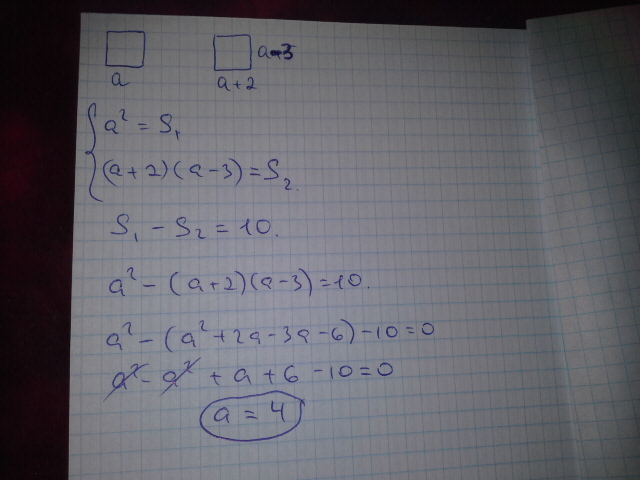 a-3
a a+2
a² = S₁
(a+2)(a-3)=S₂.
S₁ - S₂ = 10.
a² - (a+2)(a-3)=10.
a² - (a²+2a-3a-6)-10=0
a² - a² + a + 6 - 10 = 0
a = 4